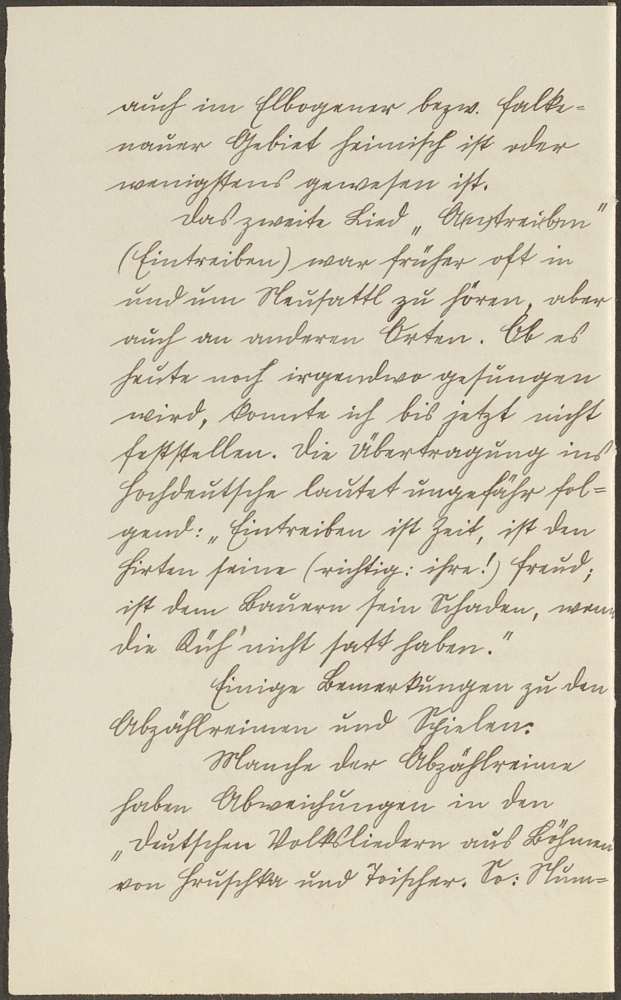 auch im Elbogener bezw. Falke-
nauer Gebiet heimisch ist oder
wenigstens gewesen ist.
Das zweite Lied „
(Eintreiben) war früher oft in
und um Neusattl zu hören, aber
auch an anderen Orten. Ob es
heute noch irgendwo gesungen
wird, konnte ich bis jetzt nicht
feststellen. Die Übertragung ins
Hochdeutsche lautet ungefähr fol-
gend: „Eintreiben ist Zeit, ist den
Hirten seine (richtig: ihre!) Freud;
ist dem Bauern sein Schaden, wenn
die Küh' nicht satt haben."
Einige Bemerkungen zu den
Abzählreimen und Spielen:
Manche der Abzählreime
haben Abweichungen in den
„Deutschen Volksliedern aus Böhmen
von Hruschka und Toischer. So: Num-